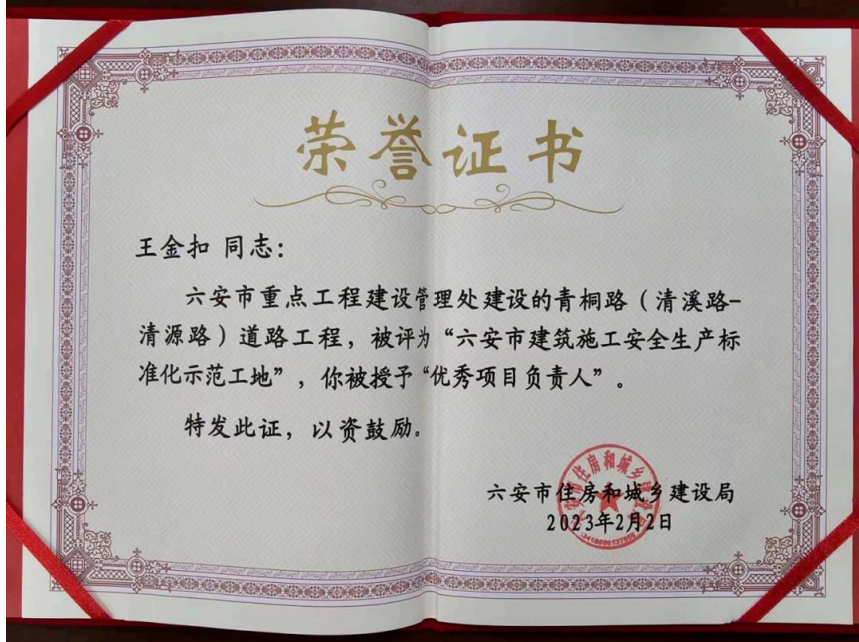 荣誉证书
王金扣 同志：
六安市重点工程建设管理处建设的青桐路（清溪路-
清源路）道路工程，被评为“六安市建筑施工安全生产标
准化示范工地”，你被授予“优秀项目负责人”。
特发此证，以资鼓励。
六安市住房和城乡建设局
2023年2月2日
六安市住房和城乡建设局